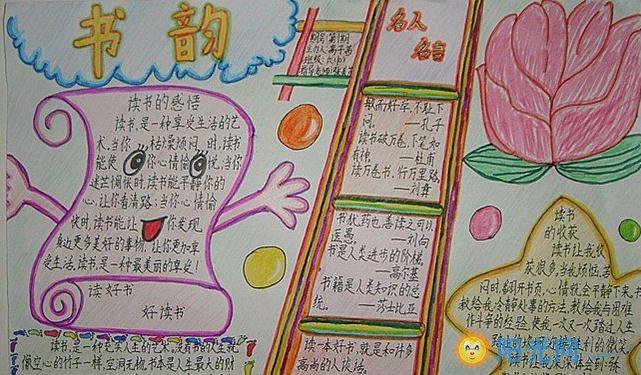 书韵
期别:第1期
班级:六(
名人
名言
读书的感悟
读书,是一种享受生活的艺
术,当你 枯燥烦闷 时,读书
能使 你心情愉悦,当你
迷茫惆怅时,读书能平静你的
心,让你看清路;当你心情愉
快时,读书能让 你发现
身边更多美好的事物,让你更加享
受生活,读书是一种最美丽的享受!
读好书
好读书
敏而好学,不耻下
问。 —孔子
读书破万卷,下笔如
有神 —杜甫
读万卷书,行万里路。
—刘彝
书犹药也,善读之可以
医愚。 —刘向
书是人类进步的阶梯。
—高尔基
书籍是人类知识的总
统。 —莎士比亚
读一本好书,就是和许多
高尚的人谈话。
读书
的收获
读书让我收
获很多,当我烦恼,苦
闷时,翻开书页,心情就会平静下来,书
教给我冷静处事的方法,教给我与困难
作斗争的经验,使我一次又一次踏过人生
的微笑。
读书让我深深体会到一种
读书,是一种充实人生的艺术,没有书的人生就
像空心的竹子一样,空洞无物,书本是人生最大的财
阳光网